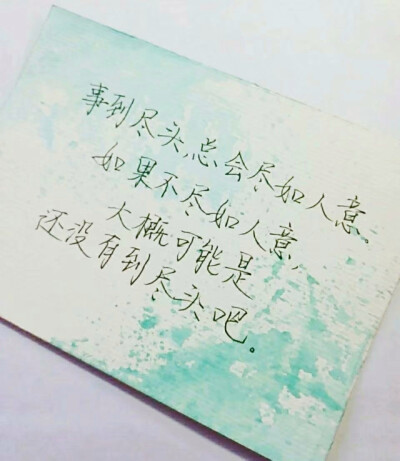 事到尽头,总会尽如人意、
如果不尽如人意,
大概可能是
还没有到尽头吧。